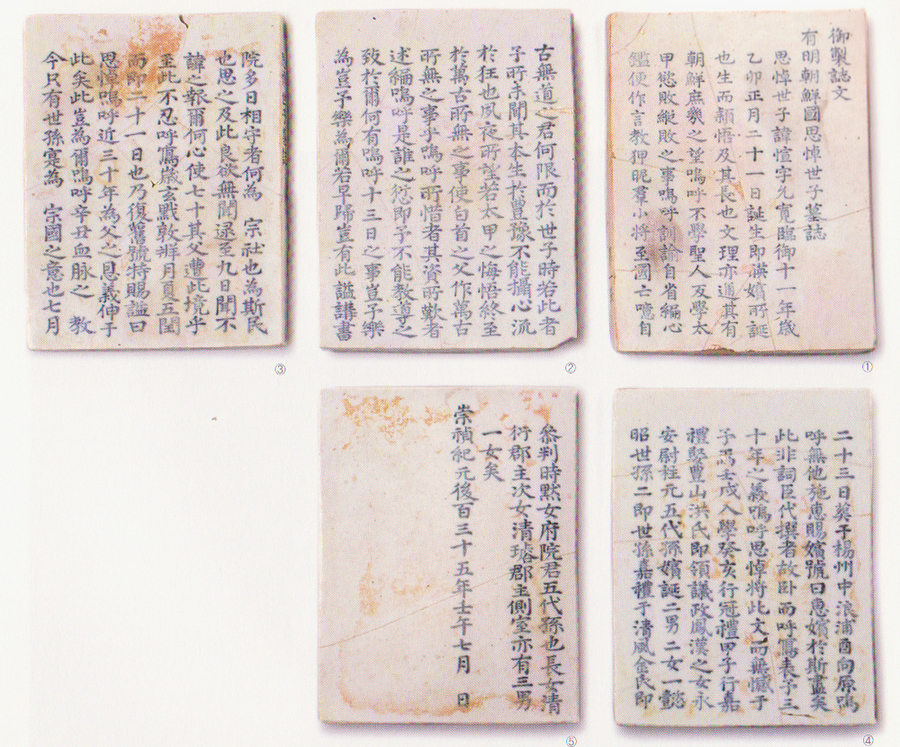 ①
御製誌文
有明朝鮮國思悼世子墓誌
思悼世子諱愃字允寬臨御十一年歲
乙卯正月二十一日誕生即暎嬪所誕
也生而穎悟及其長也文理亦通其有
朝鮮庶幾之望嗚呼不學聖人反學太
甲慾敗縱敗之事嗚呼訓諭自省編心
鑑便作言教狎昵羣小將至國亡噫自
②
古無道之君何限而於世子時若此者
予所未聞其本生於豊豫不能攝心流
於狂也夙夜所望若太甲之悔悟終至
於萬古所無之事使白首之父作萬古
所無之事乎嗚呼所惜者其資所歎者
述編嗚呼是誰之愆即予不能教導之
致於爾何有嗚呼十三日之事豈予樂
為豈予樂為爾若早歸豈有此諡講書
③
院多日相守者何為 宗社也為斯民
也思之及此良欲無聞逮至九日聞不
諱之報爾何心使七十其父遭此境乎
至此不忍呼寫歲玄黓敦牂月夏五閏
而即二十一日也乃復舊號特賜諡曰
思悼嗚呼近三十年為父之恩義伸于
此矣此豈為爾嗚呼辛丑血脉之 教
今只有世孫寔為 宗國之意也七月
④
二十三日葬于楊州中浪浦酉向原嗚
呼無他施惠賜嬪號曰惠嬪於斯盡矣
此非詞臣代撰者故卧而呼寫表予三
十年之義嗚呼思悼將此文而無憾于
予焉壬戌入學癸亥行冠禮甲子行嘉
禮娶豊山洪氏即領議政鳳漢之女永
安尉柱元五代孫嬪誕二男二女一懿
昭世孫二即世孫嘉禮于清風金氏即
⑤
叅判時默女府院君五代孫也長女清
衍郡主次女清璿郡主側室亦有三男
一女矣
崇禎紀元後百三十五年壬午七月 日